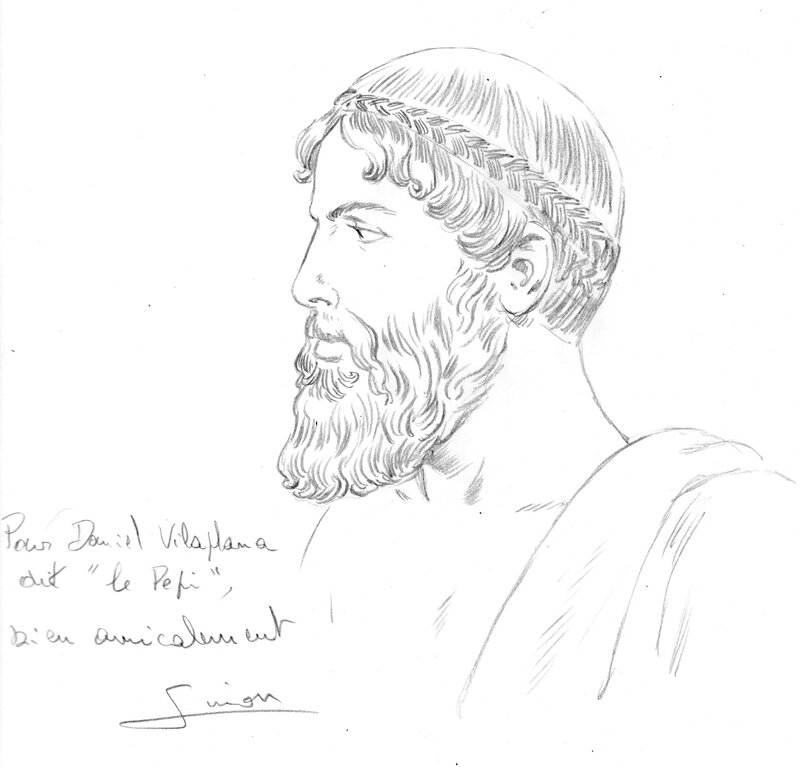 Pour Daniel Vilaplana
dit "le Pepi",
bien amicalement
Simon